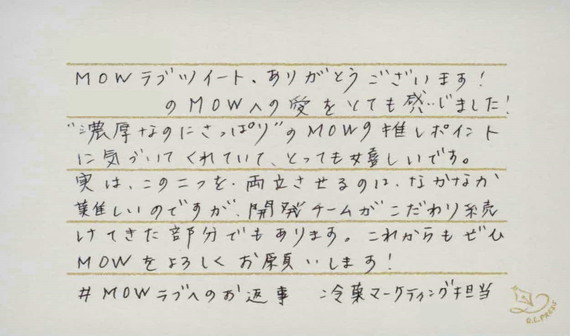 MOWラブツイート、ありがとうございます!
のMOWへの愛をとても感じました!
"濃厚なのにさっぱり"のMOWの推しポイント
に気づいてくれていて、とっても嬉しいです。
実は、この二つを両立させるのは、なかなか
難しいのですが、開発チームがこだわり続
けてきた部分でもあります。これからもぜひ
MOWをよろしくお願いします!
#MOWラブへのお返事 冷菓マーケティング担当